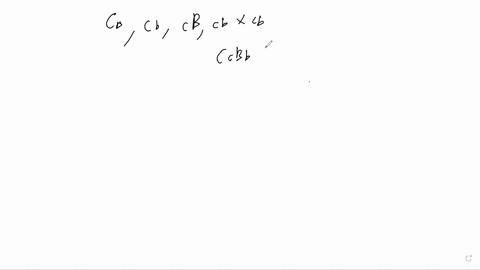 CB, Cb, cB, cb × cb
CcBb